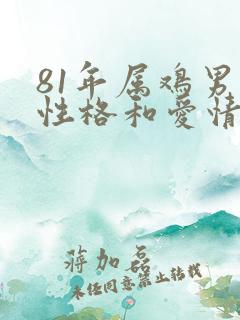 81年属鸡男
性格和爱情
蒋加磊
未经同意禁止转载